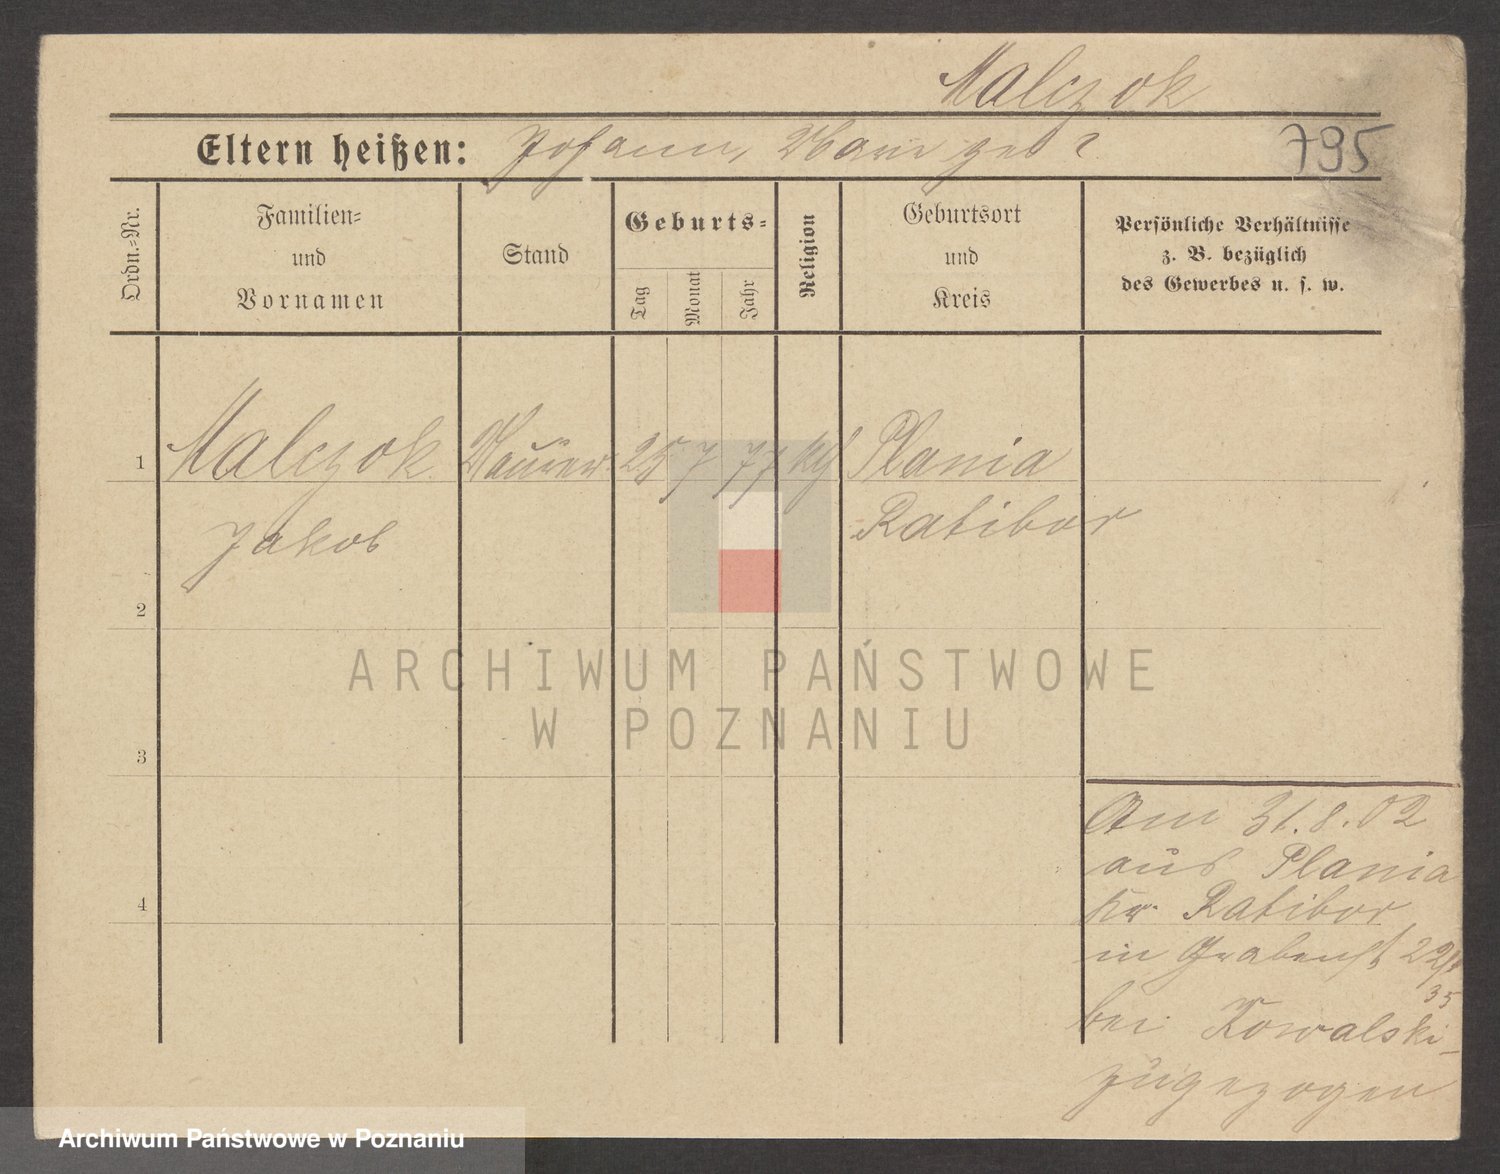 Malczok
Eltern heißen: Johann, Marie geb ?
795
Ordn.=Nr.
Familien=
und
Vornamen
Stand
Geburts=
Tag
Monat
Jahr
Religion
Geburtsort
und
Kreis
Persönliche Verhältnisse
z. B. bezüglich
des Gewerbes u. s. w.
1 Malczok Maurer 25 7 77 kth Plania
Jakob Ratibor
2
3
4
Am 31.8.02
aus Plania
Kr. Ratibor
in Grabenst 22
35
bei Kowalski
zugezogen
ARCHIWUM PAŃSTWOWE
W POZNANIU
Archiwum Państwowe w Poznaniu